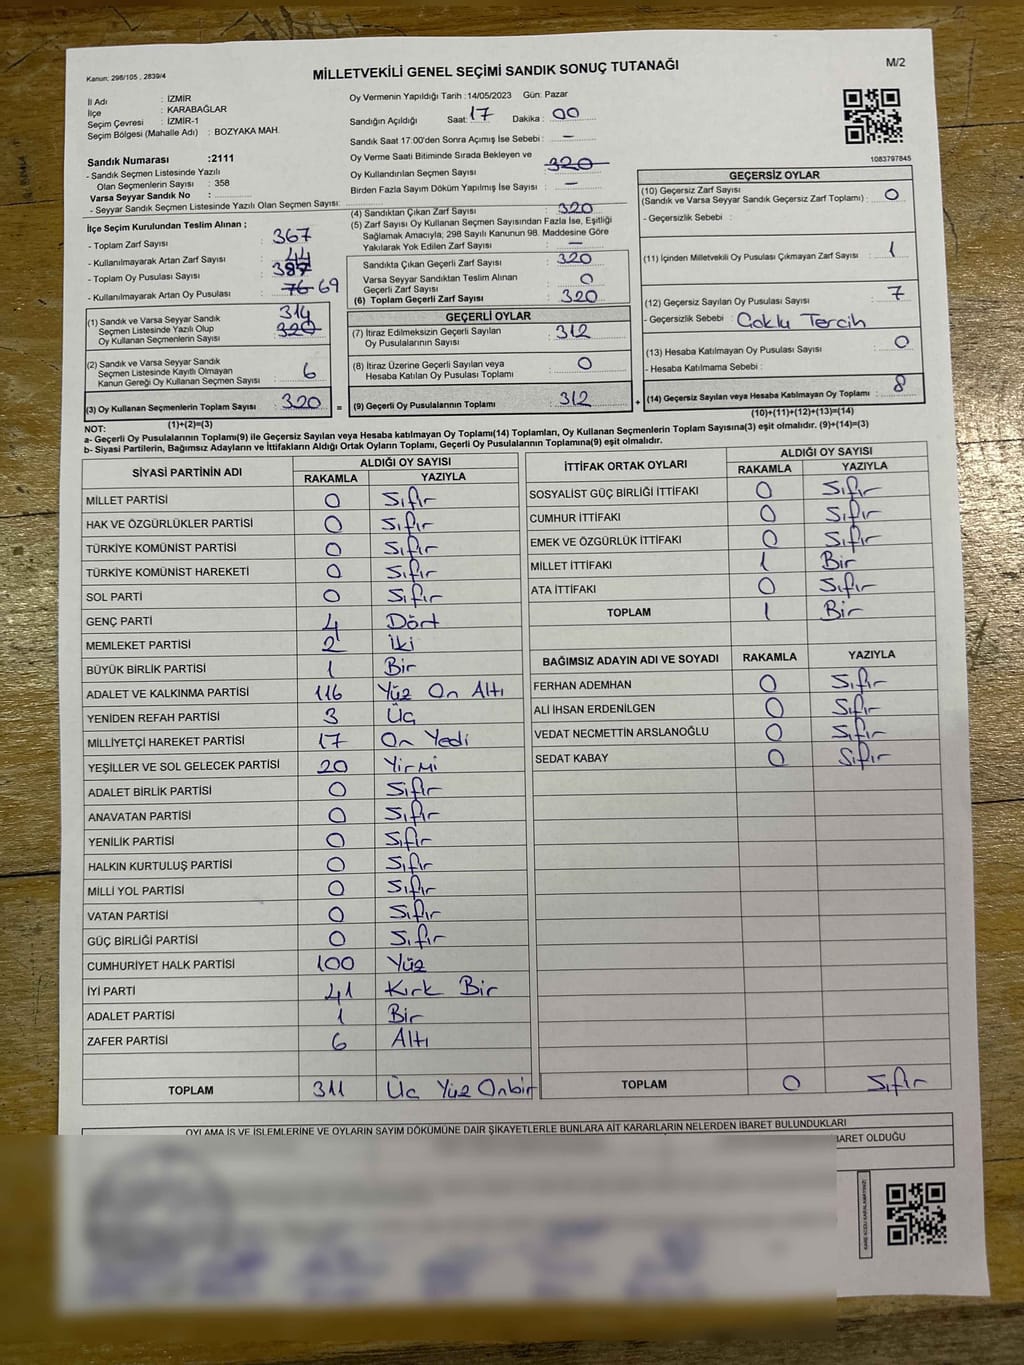 Kanun: 298/105 , 2839/4
MİLLETVEKİLİ GENEL SEÇİMİ SANDIK SONUÇ TUTANAĞI
M/2
İl Adı : İZMİR
İlçe : KARABAĞLAR
Seçim Çevresi : İZMİR-1
Seçim Bölgesi (Mahalle Adı) : BOZYAKA MAH.
Sandık Numarası :2111
- Sandık Seçmen Listesinde Yazılı
Olan Seçmenlerin Sayısı : 358
Varsa Seyyar Sandık No :
- Seyyar Sandık Seçmen Listesinde Yazılı Olan Seçmen Sayısı:
İlçe Seçim Kurulundan Teslim Alınan ;
- Toplam Zarf Sayısı : 367
- Kullanılmayarak Artan Zarf Sayısı : 44
- Toplam Oy Pusulası Sayısı : 387
- Kullanılmayarak Artan Oy Pusulası : 76 69
(1) Sandık ve Varsa Seyyar Sandık
Seçmen Listesinde Yazılı Olup
Oy Kullanan Seçmenlerin Sayısı : 314 320
(2) Sandık ve Varsa Seyyar Sandık
Seçmen Listesinde Kayıtlı Olmayan
Kanun Gereği Oy Kullanan Seçmen Sayısı : 6
(3) Oy Kullanan Seçmenlerin Toplam Sayısı : 320
(1)+(2)=(3)
Oy Vermenin Yapıldığı Tarih :14/05/2023 Gün: Pazar
Sandığın Açıldığı Saat: 17 Dakika : 00
Sandık Saat 17:00'den Sonra Açımış İse Sebebi : –
Oy Verme Saati Bitiminde Sırada Bekleyen ve
Oy Kullandırılan Seçmen Sayısı : 320
Birden Fazla Sayım Döküm Yapılmış İse Sayısı : –
(4) Sandıktan Çıkan Zarf Sayısı : 320
(5) Zarf Sayısı Oy Kullanan Seçmen Sayısından Fazla İse, Eşitliği
Sağlamak Amacıyla; 298 Sayılı Kanunun 98. Maddesine Göre
Yakılarak Yok Edilen Zarf Sayısı : –
Sandıkta Çıkan Geçerli Zarf Sayısı : 320
Varsa Seyyar Sandıktan Teslim Alınan
Geçerli Zarf Sayısı : 0
(6) Toplam Geçerli Zarf Sayısı : 320
GEÇERLİ OYLAR
(7) İtiraz Edilmeksizin Geçerli Sayılan
Oy Pusulalarının Sayısı : 312
(8) İtiraz Üzerine Geçerli Sayılan veya
Hesaba Katılan Oy Pusulası Toplamı : 0
= (9) Geçerli Oy Pusulalarının Toplamı : 312
1083797845
GEÇERSİZ OYLAR
(10) Geçersiz Zarf Sayısı
(Sandık ve Varsa Seyyar Sandık Geçersiz Zarf Toplamı) : 0
- Geçersizlik Sebebi :
(11) İçinden Milletvekili Oy Pusulası Çıkmayan Zarf Sayısı : 1
(12) Geçersiz Sayılan Oy Pusulası Sayısı : 7
- Geçersizlik Sebebi : Çoklu Tercih
(13) Hesaba Katılmayan Oy Pusulası Sayısı : 0
- Hesaba Katılmama Sebebi :
+ (14) Geçersiz Sayılan veya Hesaba Katılmayan Oy Toplamı : 8
(10)+(11)+(12)+(13)=(14)
NOT:
a- Geçerli Oy Pusulalarının Toplamı(9) ile Geçersiz Sayılan veya Hesaba katılmayan Oy Toplamı(14) Toplamları, Oy Kullanan Seçmenlerin Toplam Sayısına(3) eşit olmalıdır. (9)+(14)=(3)
b- Siyasi Partilerin, Bağımsız Adayların ve İttifakların Aldığı Ortak Oyların Toplamı, Geçerli Oy Pusulalarının Toplamına(9) eşit olmalıdır.
SİYASİ PARTİNİN ADI ALDIĞI OY SAYISI
RAKAMLA YAZIYLA
MİLLET PARTİSİ 0 Sıfır
HAK VE ÖZGÜRLÜKLER PARTİSİ 0 Sıfır
TÜRKİYE KOMÜNİST PARTİSİ 0 Sıfır
TÜRKİYE KOMÜNİST HAREKETİ 0 Sıfır
SOL PARTİ 0 Sıfır
GENÇ PARTİ 4 Dört
MEMLEKET PARTİSİ 2 İki
BÜYÜK BİRLİK PARTİSİ 1 Bir
ADALET VE KALKINMA PARTİSİ 116 Yüz On Altı
YENİDEN REFAH PARTİSİ 3 Üç
MİLLİYETÇİ HAREKET PARTİSİ 17 On Yedi
YEŞİLLER VE SOL GELECEK PARTİSİ 20 Yirmi
ADALET BİRLİK PARTİSİ 0 Sıfır
ANAVATAN PARTİSİ 0 Sıfır
YENİLİK PARTİSİ 0 Sıfır
HALKIN KURTULUŞ PARTİSİ 0 Sıfır
MİLLİ YOL PARTİSİ 0 Sıfır
VATAN PARTİSİ 0 Sıfır
GÜÇ BİRLİĞİ PARTİSİ 0 Sıfır
CUMHURİYET HALK PARTİSİ 100 Yüz
İYİ PARTİ 41 Kırk Bir
ADALET PARTİSİ 1 Bir
ZAFER PARTİSİ 6 Altı
TOPLAM 311 Üç Yüz Onbir
İTTİFAK ORTAK OYLARI ALDIĞI OY SAYISI
RAKAMLA YAZIYLA
SOSYALİST GÜÇ BİRLİĞİ İTTİFAKI 0 Sıfır
CUMHUR İTTİFAKI 0 Sıfır
EMEK VE ÖZGÜRLÜK İTTİFAKI 0 Sıfır
MİLLET İTTİFAKI 1 Bir
ATA İTTİFAKI 0 Sıfır
TOPLAM 1 Bir
BAĞIMSIZ ADAYIN ADI VE SOYADI RAKAMLA YAZIYLA
FERHAN ADEMHAN 0 Sıfır
ALİ İHSAN ERDENİLGEN 0 Sıfır
VEDAT NECMETTİN ARSLANOĞLU 0 Sıfır
SEDAT KABAY 0 Sıfır
TOPLAM 0 Sıfır
OYLAMA İŞ VE İŞLEMLERİNE VE OYLARIN SAYIM DÖKÜMÜNE DAİR ŞİKAYETLERLE BUNLARA AİT KARARLARIN NELERDEN İBARET BULUNDUKLARI
OLDUĞU